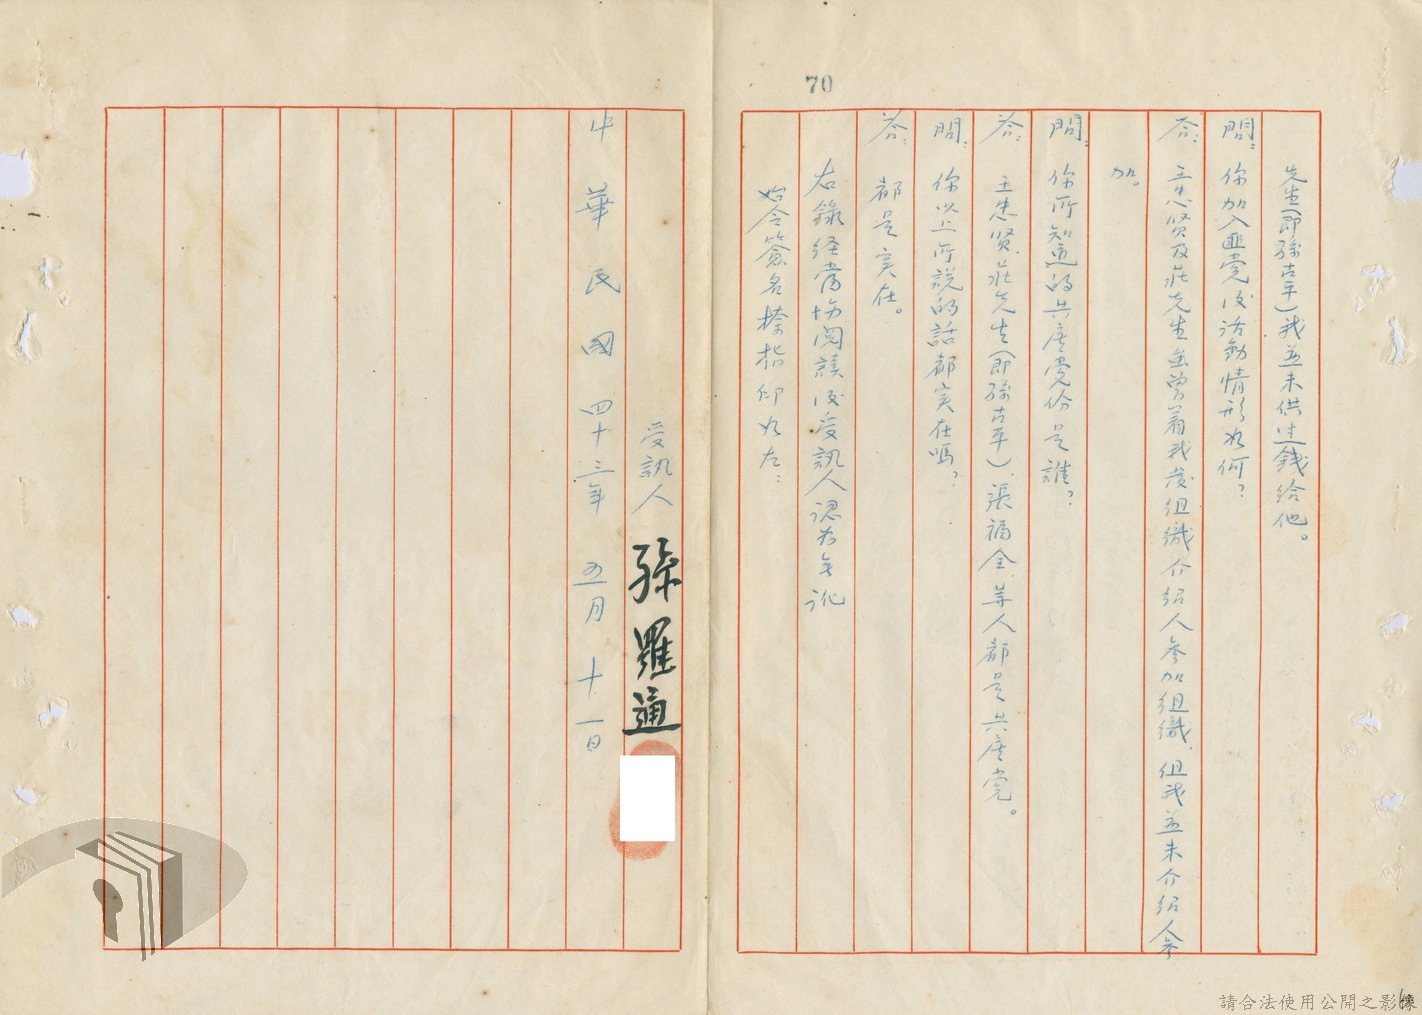 70
先生(即孫古平)我並未供生錢給他。
問：你加入匪党後活動情形如何？
答：王忠賢及莊先生虽曾着我發組織介紹人參加組織，但我並未介紹人參
加。
問：你所知道的共產党份是誰？
答：王忠賢、莊先生(即孫古平)、張福全、等人都是共產党。
問：你以上所說的話都実在嗎？
答：都是実在。
右錄経當場閱讀後受訊人認為无訛
始令簽名捺指印如左：
受訊人 孫羅通
中華民國四十三年五月十一日
請合法使用公開之影像